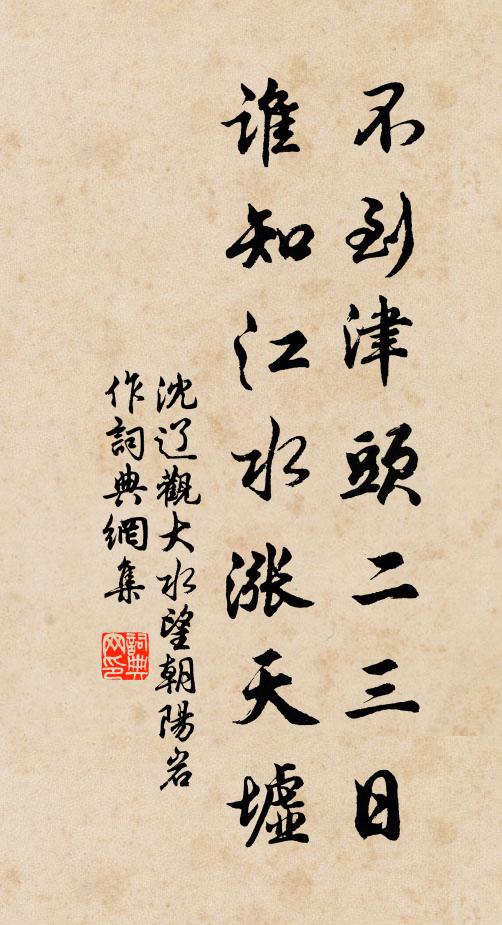 不到津頭二三日
誰知江水漲天墟
沈辽觀大水望朝陽岩
作詞典網集
詞典網印